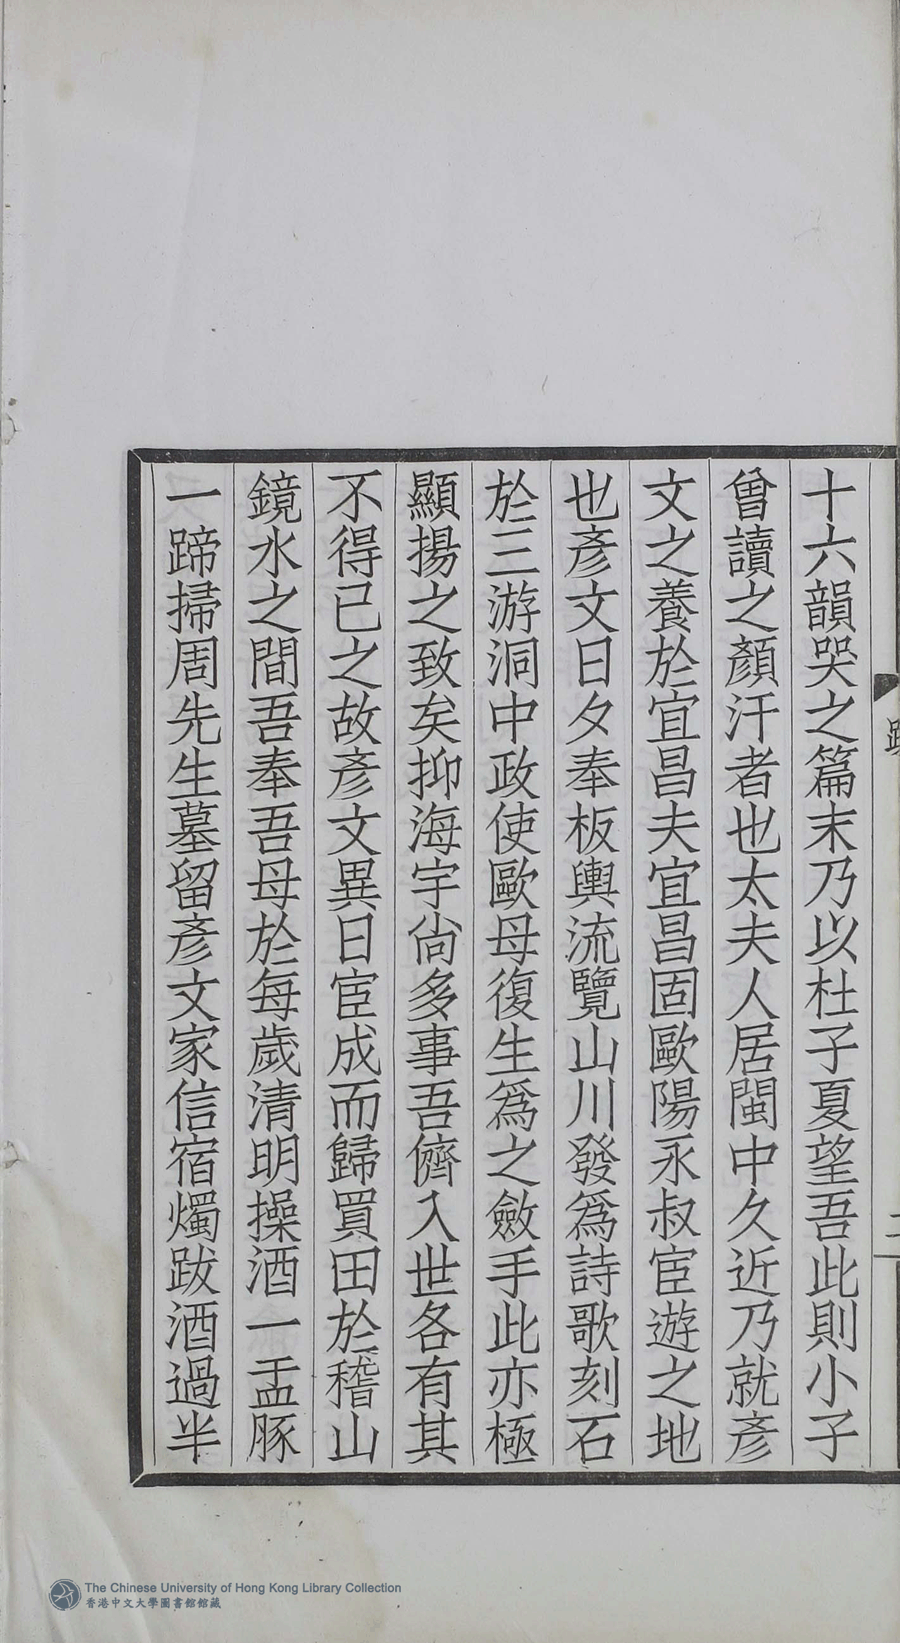 十六韻哭之篇末乃以杜子夏望吾此則小子
曾讀之顏汗者也太夫人居閩中久近乃就彥
文之養於宜昌夫宜昌固歐陽永叔宦遊之地
也彥文日夕奉板輿流覽山川發爲詩歌刻石
於三游洞中政使歐母復生爲之斂手此亦極
顯揚之致矣抑海宇尙多事吾儕入世各有其
不得已之故彥文異日宦成而歸買田於稽山
鏡水之間吾奉吾母於每歲清明操酒一盂豚
一蹄掃周先生墓留彥文家信宿燭跋酒過半
二
The Chinese University of Hong Kong Library Collection
香港中文大學圖書館館藏